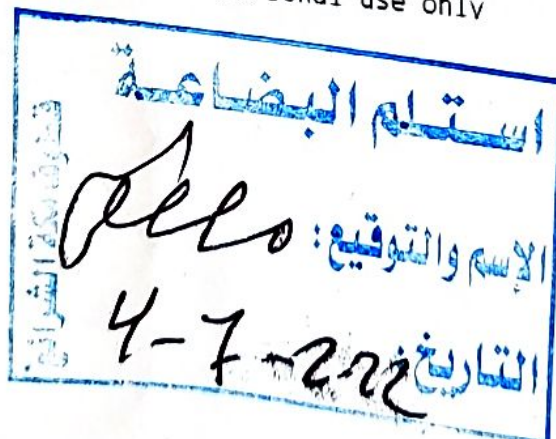 use only
استلام البضاعة
الإسم والتوقيع:
التاريخ: 4-7-2022